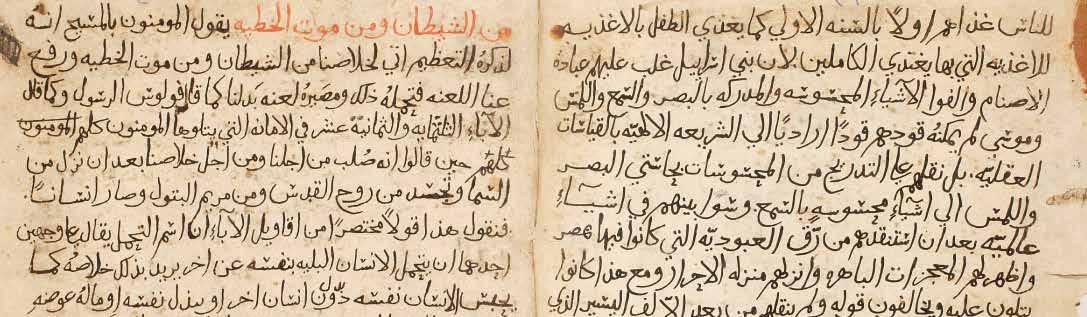 للناس غذاهم اولاً بالسنه الاولي كما يغتدي الطفل بالاغذيه
للاغذيه التي بها يغتدي الكاملين. لان بني اسراييل غلب عليهم عبادة
الاصنام والفوا الاشياء المحسوسه والمدركه بالبصر والسمع واللمس
وموسي لم يمكنه قودهم قودًا اراديًا الي الشريعه الالهيه بالقياسات
العقليه. بل نقلهم علي التدريج من المحسوسات بحاستي البصر
واللمس الي اشياءٍ محسوسهٍ بالسمع. وسوا بينهم في اشياءٍ
عالميه بعد ان استنقذهم من رق العبوديه التي كانوا فيها بمصر
واظهر لهم المعجزات الباهره وانزلهم منزله الاحرار ومع هذا كانوا
يتلون عليه ويخالفون قوله ولم ينقلهم من بعد الالف اليسير الذي
من الشيطان ومن موت الخطيه يقول المومنون بالمسيح انه
لذكره التعظيم اتي لخلاصنا من الشيطان ومن موت الخطيه ورفع
عنا اللعنه فتحمله ذلك ومصيره لعنه بدلنا كما قال فولوس الرسول وكما قال
الآباء الثلثمايه والثمانية عشر في الامانه التي يتلوها المومنون كلهم المومنون
كلهم حين قالوا انه صلب من اجلنا ومن اجل خلاصنا بعد ان نزل من
السما وتجسد من روح القدس ومن مريم البتول وصار انسانًا.
فنقول هذا قولاً مختصرًا من اقاويل الآباء ان اسم التحمل يقال علي وجهين
احدها ان يتحمل الانسان البليه بنفسه عن اخر يريد بذلك خلاصه كما
يحبس الانسان نفسه دون انسان اخر او يبذل نفسه او ماله عوضه